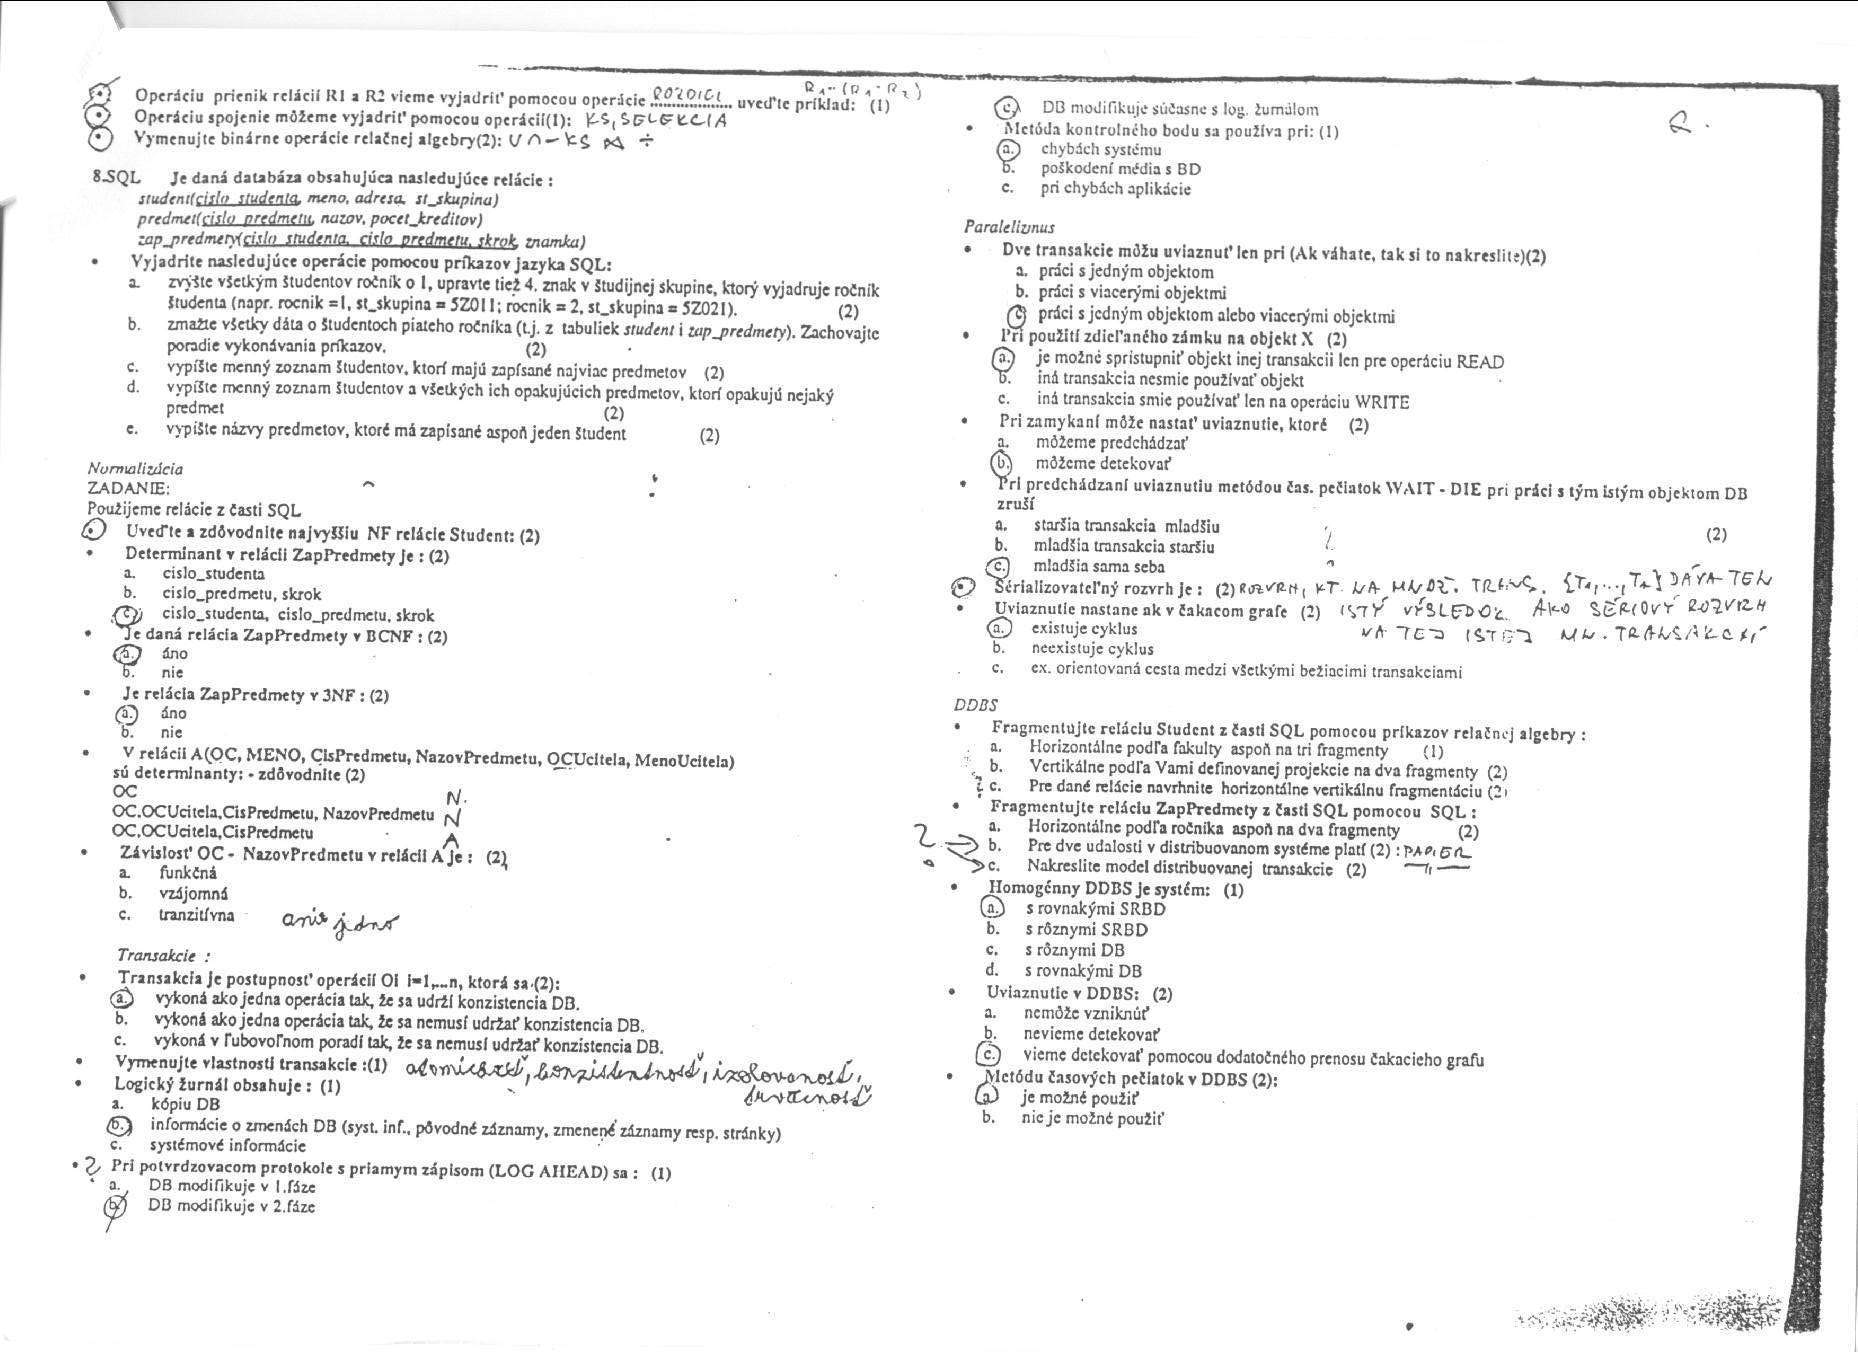 Operáciu prienik relácií R1 a R2 vieme vyjadriť pomocou operácie ROZDIEL uveďte príklad: (1) R1-(R1-R2)
Operáciu spojenie môžeme vyjadriť pomocou operácií(1): KS, SELEKCIA
Vymenujte binárne operácie relačnej algebry(2): ∪ ∩ - KS ⋈ ÷
8.SQL Je daná databáza obsahujúca nasledujúce relácie :
student(cislo_studenta, meno, adresa, st_skupina)
predmet(cislo_predmetu, nazov, pocet_kreditov)
zap_predmety(cislo_studenta, cislo_predmetu, skrok, znamka)
• Vyjadrite nasledujúce operácie pomocou príkazov jazyka SQL:
a. zvýšte všetkým študentov ročník o 1, upravte tiež 4. znak v študijnej skupine, ktorý vyjadruje ročník
študenta (napr. rocnik =1, st_skupina = 5Z011; rocnik = 2, st_skupina = 5Z021). (2)
b. zmažte všetky dáta o študentoch piateho ročníka (t.j. z tabuliek student i zap_predmety). Zachovajte
poradie vykonávania príkazov. (2)
c. vypíšte menný zoznam študentov, ktorí majú zapísané najviac predmetov (2)
d. vypíšte menný zoznam študentov a všetkých ich opakujúcich predmetov, ktorí opakujú nejaký
predmet (2)
e. vypíšte názvy predmetov, ktoré má zapísané aspoň jeden študent (2)
Normalizácia
ZADANIE:
Použijeme relácie z časti SQL
Uveďte a zdôvodnite najvyššiu NF relácie Student: (2)
• Determinant v relácii ZapPredmety je : (2)
a. cislo_studenta
b. cislo_predmetu, skrok
c. cislo_studenta, cislo_predmetu, skrok
• Je daná relácia ZapPredmety v BCNF : (2)
a. áno
b. nie
• Je relácia ZapPredmety v 3NF : (2)
a. áno
b. nie
• V relácii A(OC, MENO, CisPredmetu, NazovPredmetu, OCUcitela, MenoUcitela)
sú determinanty: - zdôvodnite (2)
OC N.
OC,OCUcitela,CisPredmetu, NazovPredmetu N
OC,OCUcitela,CisPredmetu A
• Závislosť OC - NazovPredmetu v relácii A je : (2)
a. funkčná
b. vzájomná
c. tranzitívna ani jedno
Transakcie :
• Transakcia je postupnosť operácií Oi i=1,...n, ktorá sa (2):
a. vykoná ako jedna operácia tak, že sa udrží konzistencia DB.
b. vykoná ako jedna operácia tak, že sa nemusí udržať konzistencia DB.
c. vykoná v ľubovoľnom poradí tak, že sa nemusí udržať konzistencia DB.
• Vymenujte vlastnosti transakcie :(1) atomickosť, konzistentnosť, izolovanosť,
trvácnosť
• Logický žurnál obsahuje : (1)
a. kópiu DB
b. informácie o zmenách DB (syst. inf., pôvodné záznamy, zmenené záznamy resp. stránky)
c. systémové informácie
• ? Pri potvrdzovacom protokole s priamym zápisom (LOG AHEAD) sa : (1)
a. DB modifikuje v 1.fáze
b. DB modifikuje v 2.fáze
c. DB modifikuje súčasne s log. žurnálom
• Metóda kontrolného bodu sa používa pri: (1)
a. chybách systému
b. poškodení média s BD
c. pri chybách aplikácie
Paralelizmus
• Dve transakcie môžu uviaznuť len pri (Ak váhate, tak si to nakreslite)(2)
a. práci s jedným objektom
b. práci s viacerými objektmi
c. práci s jedným objektom alebo viacerými objektmi
• Pri použití zdieľaného zámku na objekt X (2)
a. je možné sprístupniť objekt inej transakcii len pre operáciu READ
b. iná transakcia nesmie používať objekt
c. iná transakcia smie používať len na operáciu WRITE
• Pri zamykaní môže nastať uviaznutie, ktoré (2)
a. môžeme predchádzať
b. môžeme detekovať
• Pri predchádzaní uviaznutiu metódou čas. pečiatok WAIT - DIE pri práci s tým istým objektom DB
zruší
a. staršia transakcia mladšiu (2)
b. mladšia transakcia staršiu
c. mladšia sama seba
Sérializovateľný rozvrh je : (2) ROZVRH, KT. NA MNOŽ. TRANS. {T1,...,Tn} DÁVA TEN
ISTÝ VÝSLEDOK AKO SÉRIOVÝ ROZVRH
NA TEJ ISTEJ MN. TRANSAKCIÍ
• Uviaznutie nastane ak v čakacom grafe (2)
a. existuje cyklus
b. neexistuje cyklus
c. ex. orientovaná cesta medzi všetkými bežiacimi transakciami
DDBS
• Fragmentujte reláciu Student z časti SQL pomocou príkazov relačnej algebry :
a. Horizontálne podľa fakulty aspoň na tri fragmenty (1)
b. Vertikálne podľa Vami definovanej projekcie na dva fragmenty (2)
c. Pre dané relácie navrhnite horizontálne vertikálnu fragmentáciu (2)
• Fragmentujte reláciu ZapPredmety z časti SQL pomocou SQL :
a. Horizontálne podľa ročníka aspoň na dva fragmenty (2)
? b. Pre dve udalosti v distribuovanom systéme platí (2) : PAPIER
c. Nakreslite model distribuovanej transakcie (2) —"—
• Homogénny DDBS je systém: (1)
a. s rovnakými SRBD
b. s rôznymi SRBD
c. s rôznymi DB
d. s rovnakými DB
• Uviaznutie v DDBS: (2)
a. nemôže vzniknúť
b. nevieme detekovať
c. vieme detekovať pomocou dodatočného prenosu čakacieho grafu
• Metódu časových pečiatok v DDBS (2):
a. je možné použiť
b. nie je možné použiť